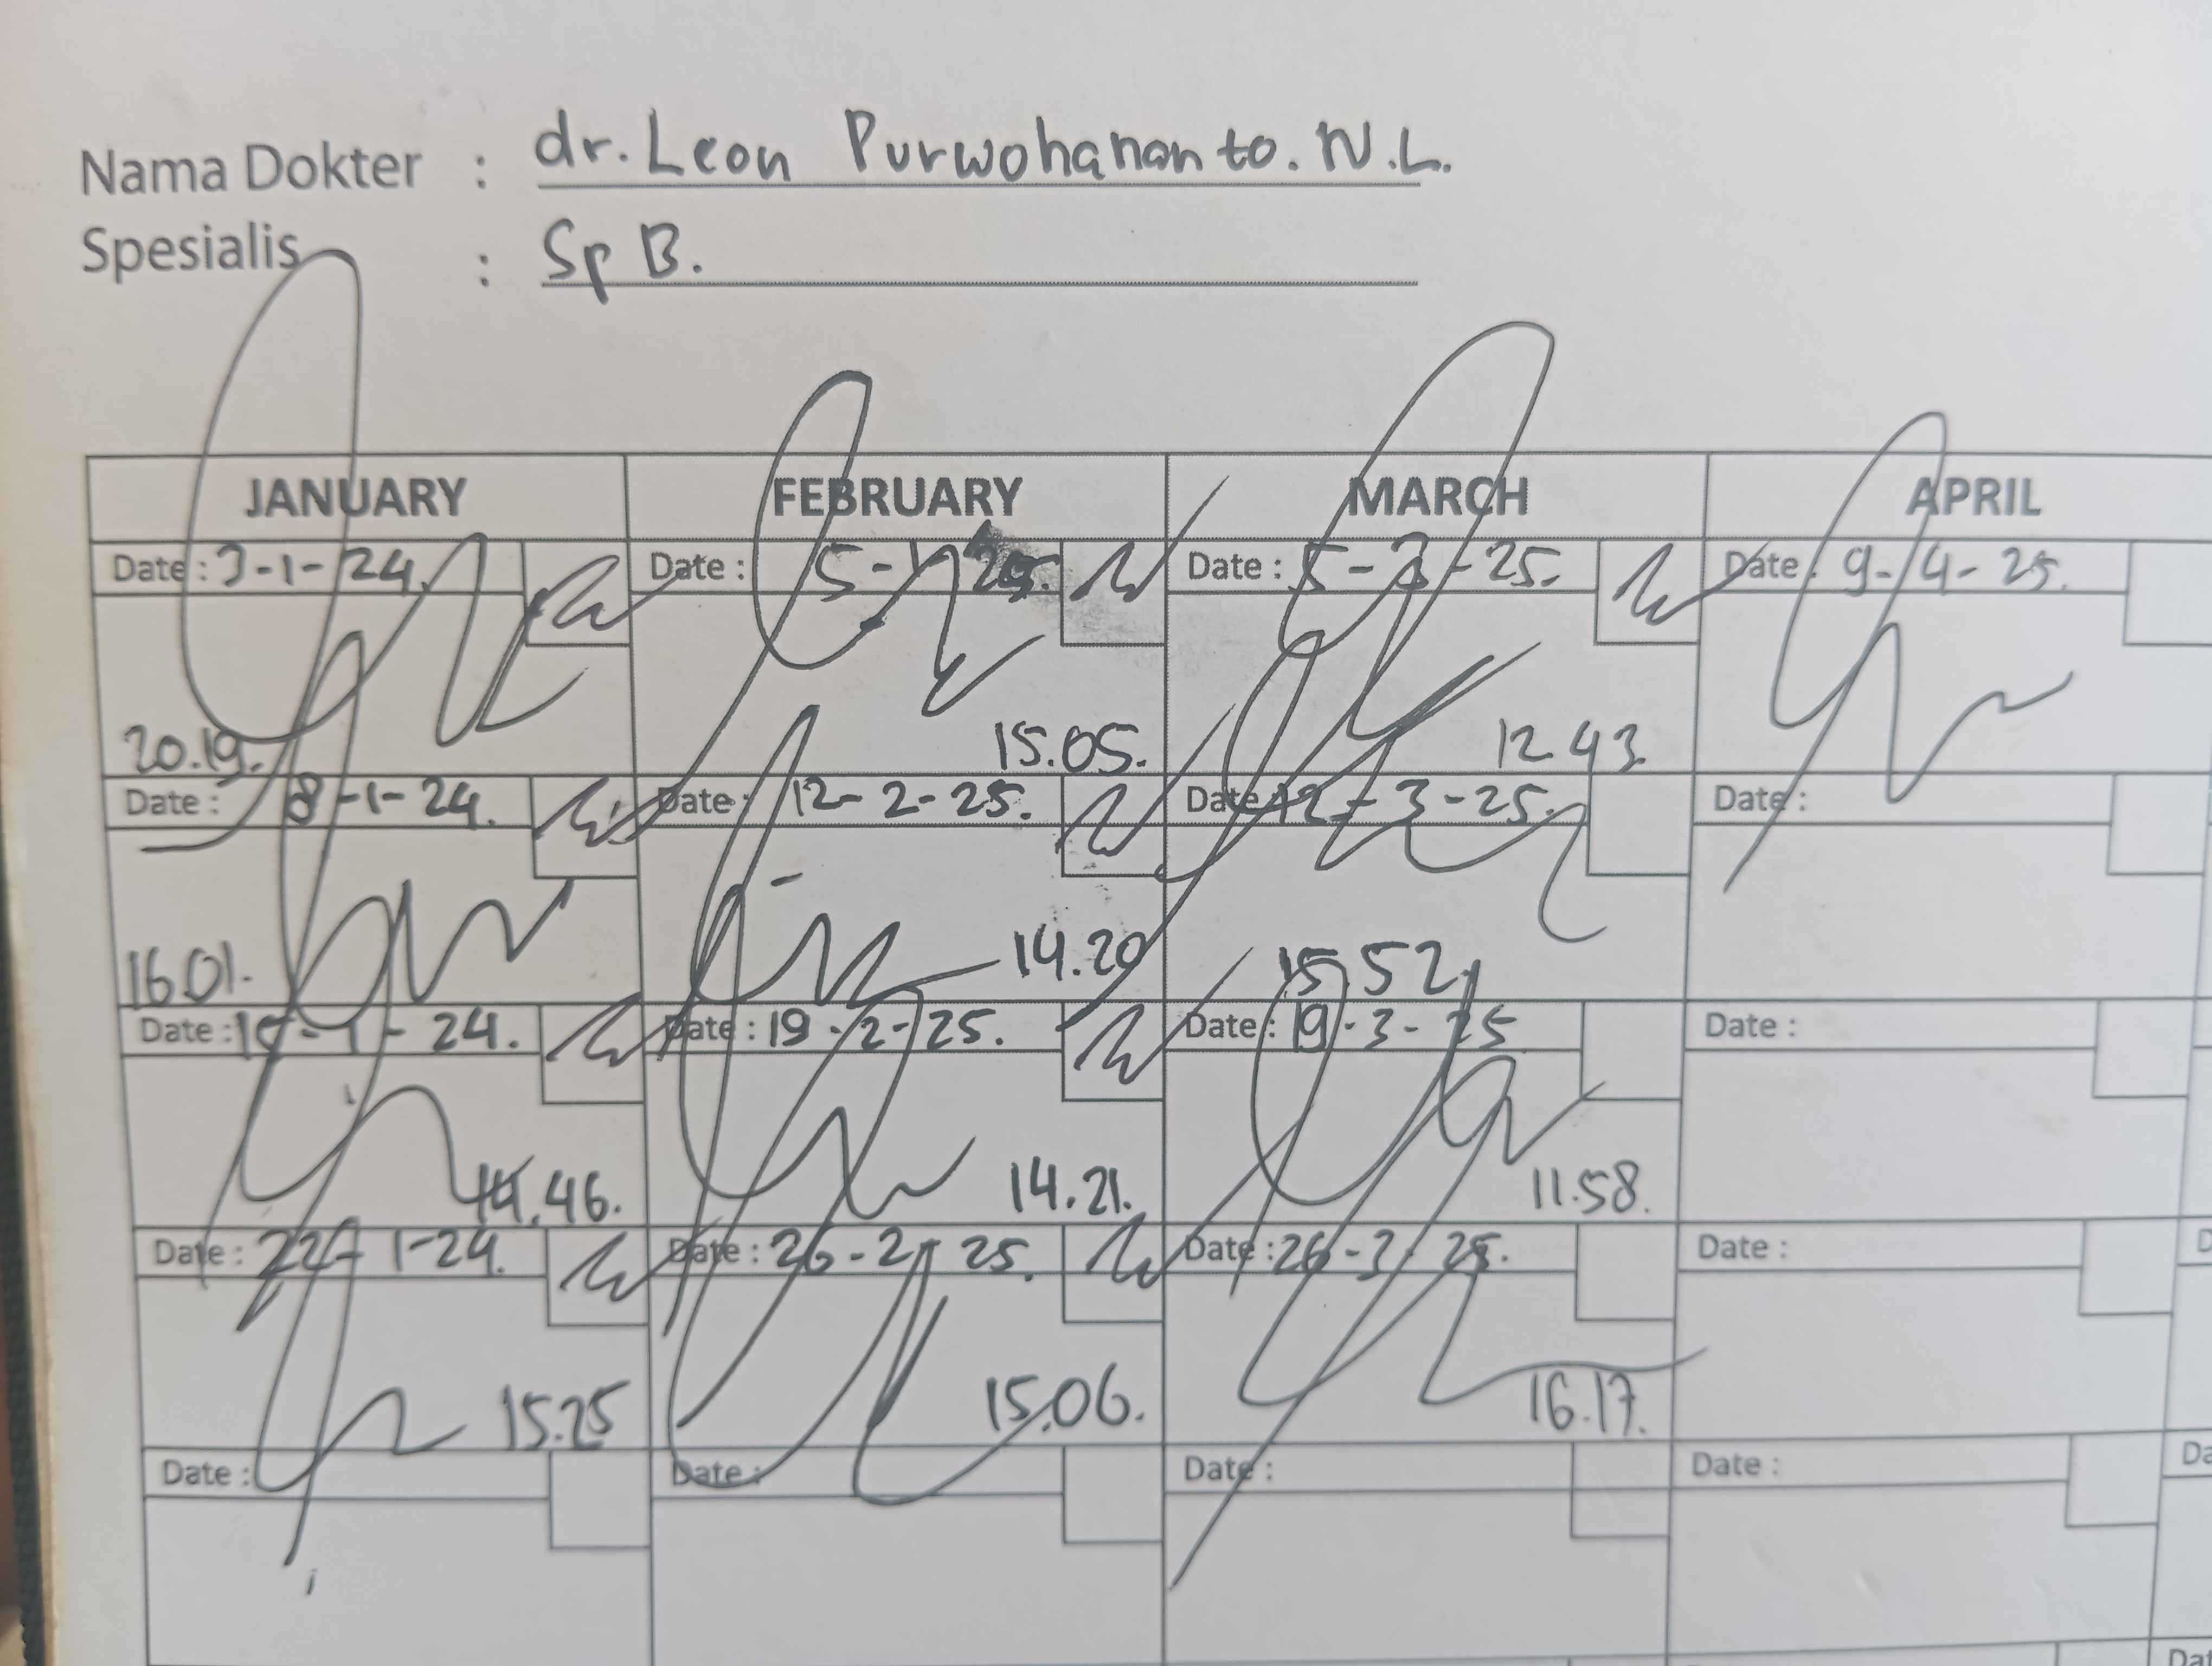 Nama Dokter : dr. Leon Purwohananto. N.L.
Spesialis : Sp B.
JANUARY FEBRUARY MARCH APRIL
Date : 3-1-24. Date : 5- 25. Date : 5-3-25. Date : 9-4-25.
20.19. 15.05. 12 43.
Date : 8-1-24. Date : 12-2-25. Date : 12-3-25. Date :
16.01. 14.20 15.52
Date : -1-24. Date : 19-2-25. Date : 19-3-25 Date :
14.46. 14.21. 11.58.
Date : 22-1-24. Date : 26-2-25. Date : 26-3-25. Date :
15.25 15.06. 16.17.
Date : Date : Date : Date : Da